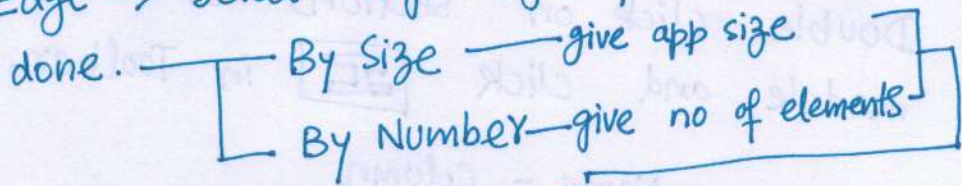 done. By Size give app size
By Number give no of elements